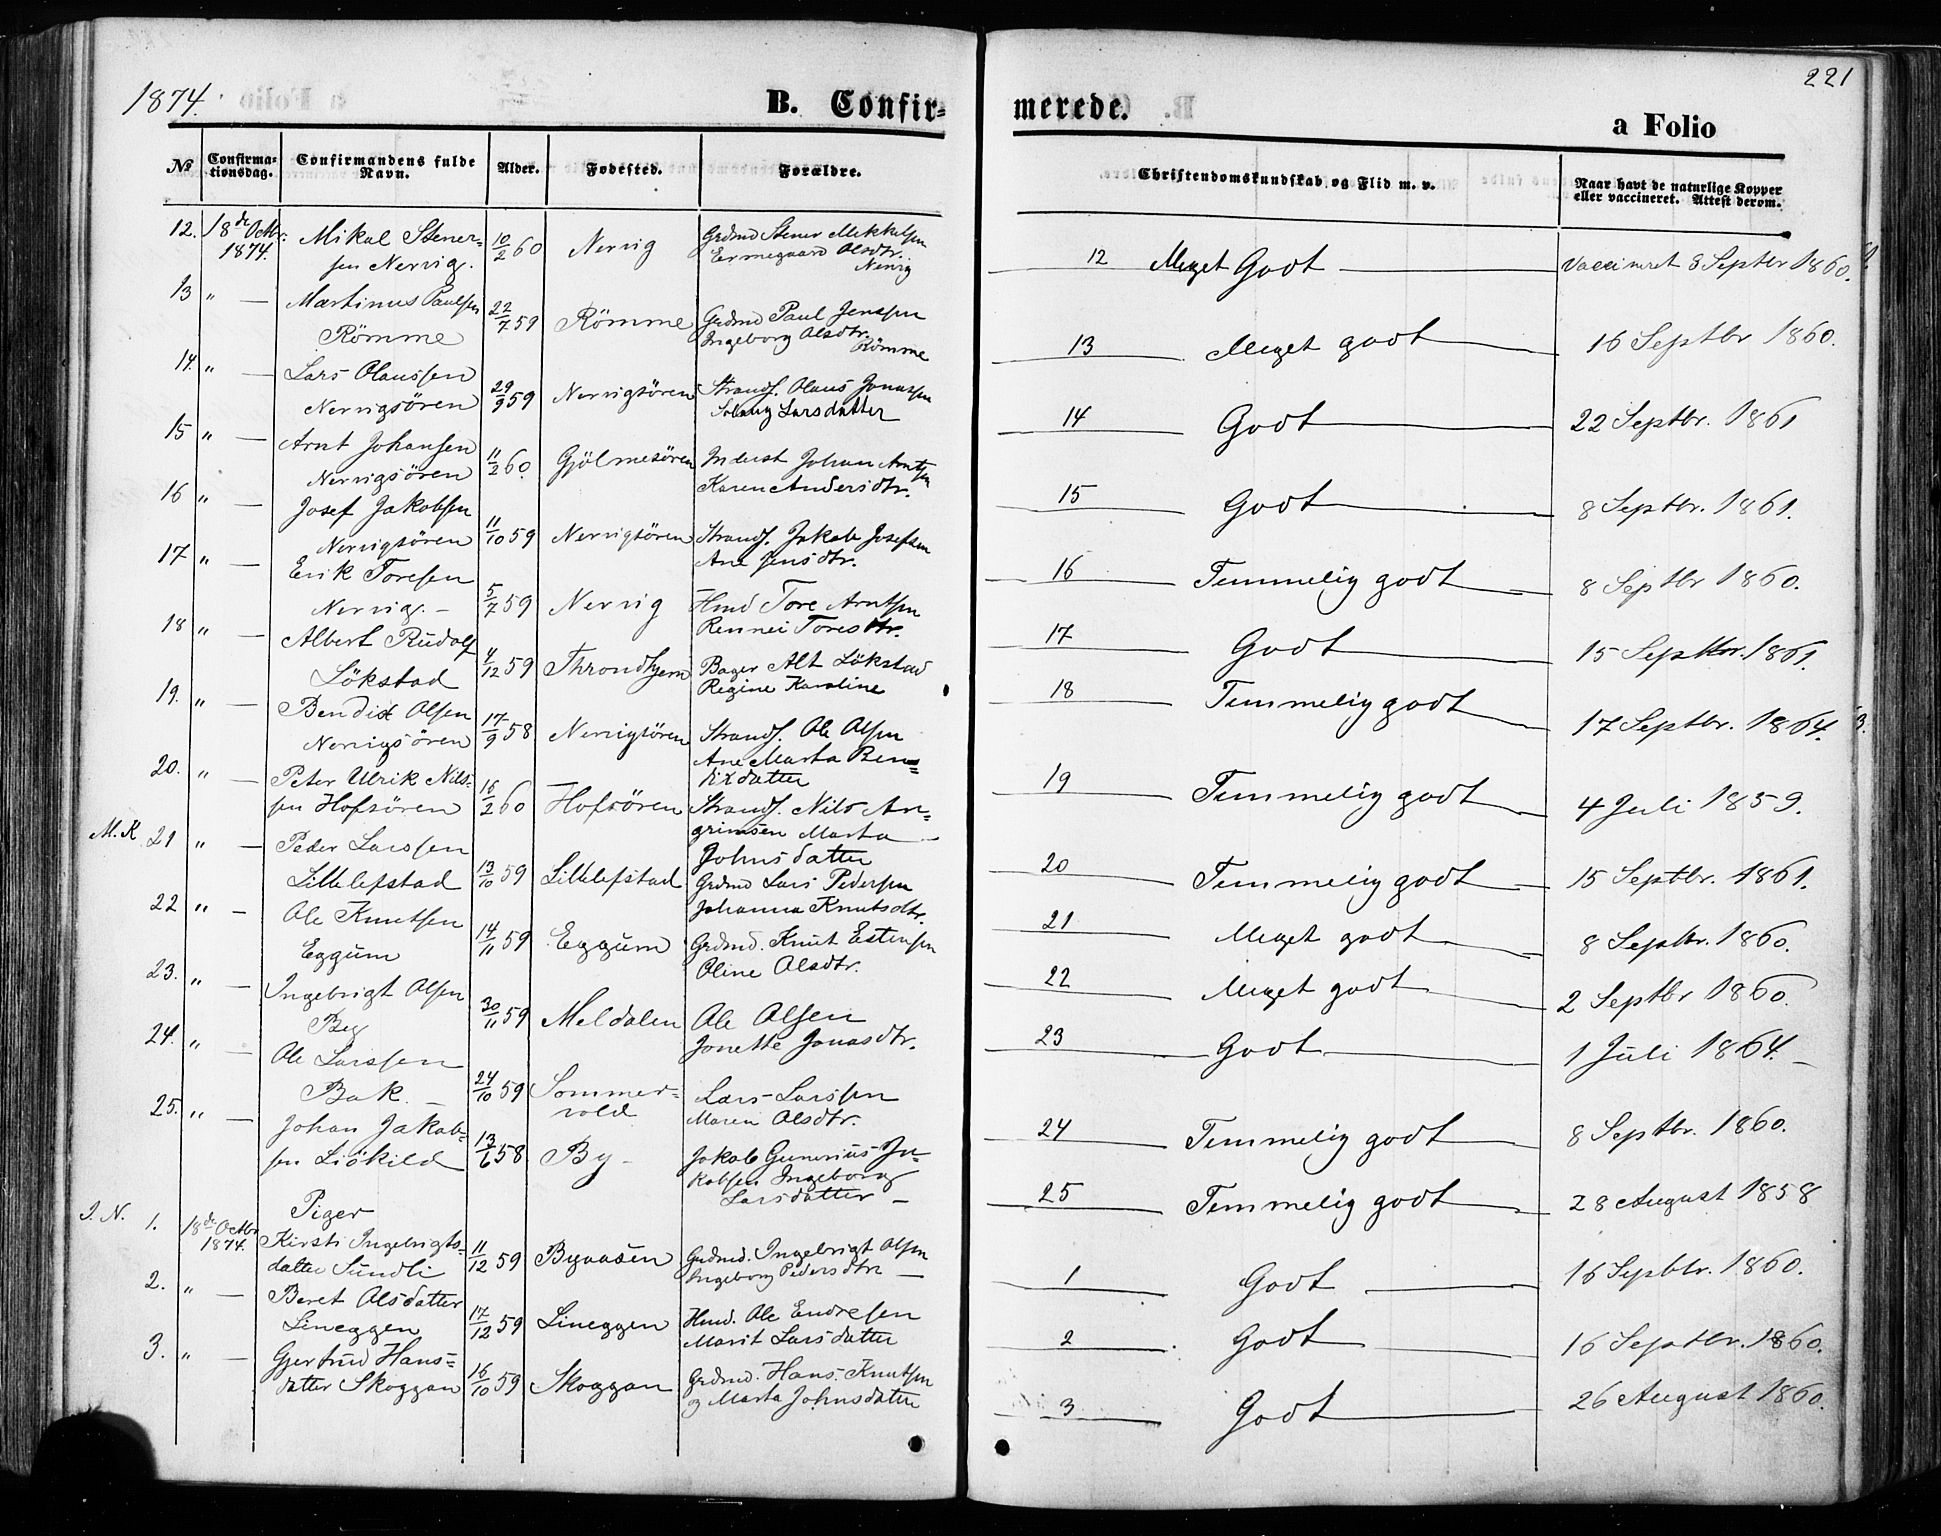 1874.
B. Confir-
No
Confirma-
tionsdag.
Confirmandens fulde
Navn.
Alder.
Fødested.
Forældre.
12. 18de Octbr. 1874. Mikal Stener- 10/2 60 Nervig Grdmd Stener Mikkelsen
sen Nervig. Ermegaard Olsdtr.
Nervig
13 " — Martinus Paulsen 22/7 59 Römme Grdmd Paul Jenssen
Römme Ingeborg Olsdtr.
Römme
14. " — Lars Olaussen 29/9 59 Nervigsören Strands. Olaus Jonassen
Nervigsören Solaug Larsdatter
15 " — Arnt Johansen 11/2 60. Gjölmesören Inderst Johan Arntsen
Nervigsören Karen Andersdtr.
16 " — Josef Jakobsen 11/10 59 Nervigsören Strands. Jakob Josefsen
Nervigsören Ane Jensdtr.
17 " — Erik Toresen 5/7 59 Nervig Hmd Tore Arntsen
Nervig. — Rennei Toresdtr.
18 " — Albert Rudolf 4/12 59 Throndhjem Bager Alt Lökstad
Lökstad Regine Karoline
19. " — Bendix Olsen 17/9 58 Nervigsören Strands. Ole Olsen
Nervigsören Ane Marta Ben-
dixdatter
20. " — Peter Ulrik Nils- 16/2 60 Hofsören Strands. Nils An-
sen Hofsören grimsen Marta
Johnsdatter
M.K 21 " — Peder Larssen 13/10 59 Lillelefstad Grdmd Lars Pedersen
Lillelefstad Johanna Knutsdtr.
22 " — Ole Knutsen 14/11 59 Eggum Grdmd. Knut Estensen
Eggum Oline Olsdtr.
23. " — Ingebrigt Olsen 30/11 59 Meldalen Ole Olsen
By Jonette Jonasdtr.
24. " — Ole Larssen 24/10 59 Sommer- Lars Larssen
Bak. — vold Maren Olsdtr.
25. " — Johan Jakob- 13/6 58 By — Jakob Gunerius Ja-
sen Liökild kobsen Ingeborg
Larsdatter —
Piger
I.N. 1. 18de Octbr 1874. Kirsti Ingebrigts- 11/12 59 Byaasen Grdmd. Ingebrigt Olsen
datter Sundli Ingeborg Pedersdtr —
2. " — Beret Olsdatter 17/12 59 Lineggen Hmd. Ole Endresen
Lineggen Marit Larsdatter
3. " — Gjertrud Hans- 16/10 59 Skoggan Grdmd. Hans Knutsen
datter Skoggan og Marta Johnsdatter
221
merede.
a Folio
Christendomskundskab og Flid m. v.
Naar havt de naturlige Kopper
eller vaccineret. Attest derom.
12 Meget Godt — Vaccineret 8 Septbr 1860.
13 Meget godt 16 Septbr 1860.
14 Godt 22 Septbr. 1861
15 Godt 8 Septbr. 1861.
16 Temmelig godt 8 Septbr 1860.
17 Godt 15 Septbr. 1861.
18 Temmelig godt 17 Septbr. 1864.
19 Temmelig godt 4 Juli 1859.
20 Temmelig godt 15 Septbr. 1861.
21 Meget godt 8 Septbr. 1860.
22 Meget godt 2 Septbr 1860.
23 Godt 1 Juli 1864. —
24 Temmelig godt 8 Septbr. 1860.
25 Temmelig godt 28 August 1858
1 Godt 16 Septbr. 1860.
2 Godt 16 Septbr. 1860.
3 Godt 26 August 1860.